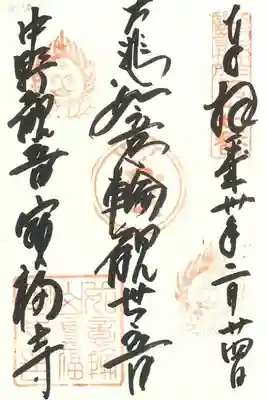 奉拝 平成卅年二月廿四日
大悲 如意輪観世音
中野観音 寳福寺